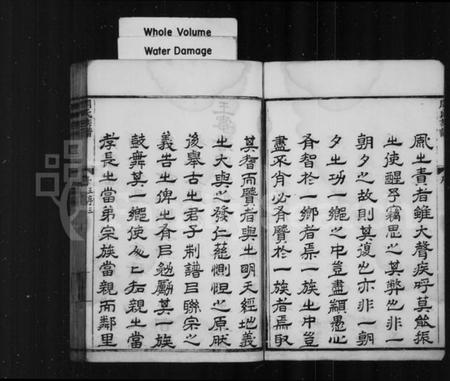 Whole Volume
Water Damage
風㞢責者雖大聲疾呼莫能振
㞢使醒予竊思㞢其弊也非一
朝夕㞢故則其復也亦非一朝
夕㞢功一鄉㞢中豈盡顓愚必
有智於一鄉者焉一族㞢中豈
盡不肖必有賢於一族者焉取
其智而賢者與㞢明天經地義
㞢大與㞢發仁慈惻怛㞢原然
後舉古㞢君子制譜以聯宗㞢
義告㞢俾㞢有以勉勵其一族
鼓舞其一鄉使凡知親㞢當
孝長㞢當弟宗族當親而鄰里